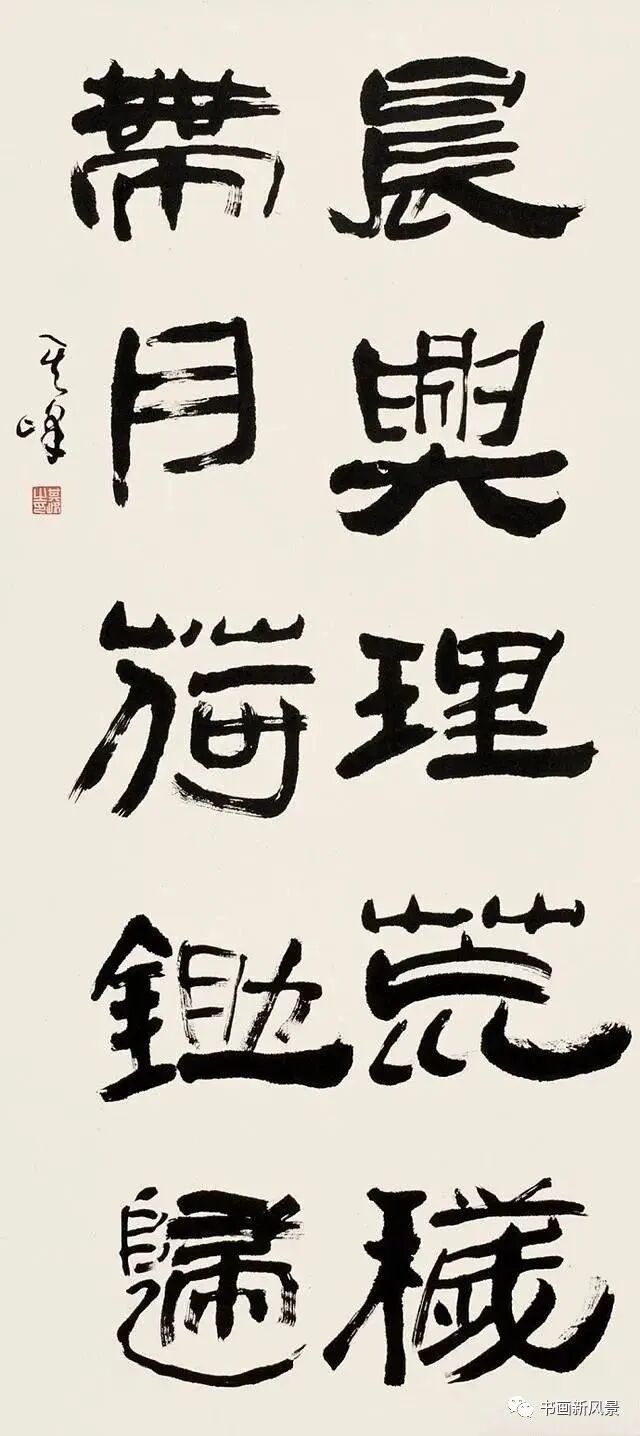 晨興理荒穢
帶月荷鋤歸
其峰
書画新风景